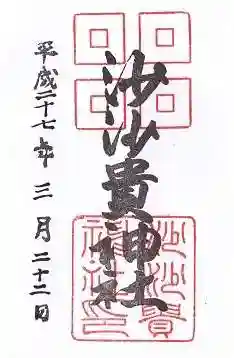 沙沙貴神社
平成二十七年三月二十二日
沙沙貴神社印